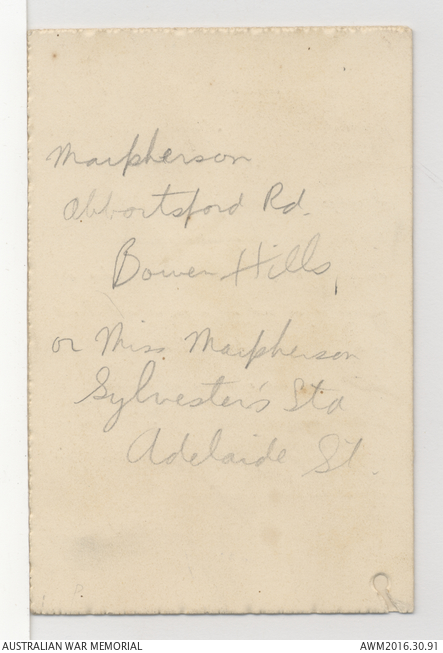 Macpherson
Abbortsford Rd.
Bowen Hills,
or Miss Macpherson
Sylvester's Std
Adelaide St.
AUSTRALIAN WAR MEMORIAL
AWM2016.30.91